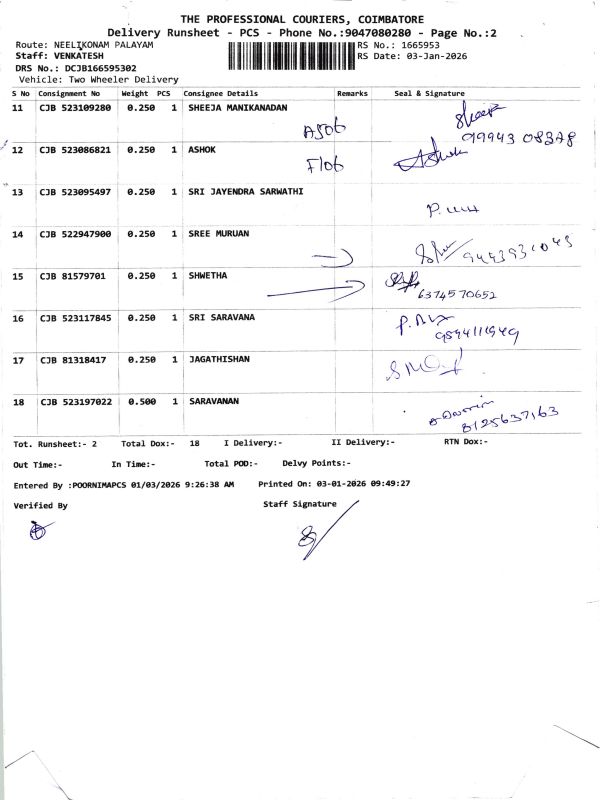 THE PROFESSIONAL COURIERS, COIMBATORE
Delivery Runsheet - PCS - Phone No.:9047080280 - Page No.:2
Route: NEELIKONAM PALAYAM
RS No.: 1665953
Staff: VENKATESH
RS Date: 03-Jan-2026
DRS No.: DCJB166595302
Vehicle: Two Wheeler Delivery
S No Consignment No Weight PCS Consignee Details Remarks Seal & Signature
11 CJB 523109280 0.250 1 SHEEJA MANIKANADAN
A506 99943 08378
12 CJB 523086821 0.250 1 ASHOK
F106 Ashok
13 CJB 523095497 0.250 1 SRI JAYENDRA SARWATHI
14 CJB 522947900 0.250 1 SREE MURUAN
15 CJB 81579701 0.250 1 SHWETHA
6374570652
16 CJB 523117845 0.250 1 SRI SARAVANA
17 CJB 81318417 0.250 1 JAGATHISHAN
18 CJB 523197022 0.500 1 SARAVANAN
8125637163
Tot. Runsheet:- 2 Total Dox:- 18 I Delivery:- II Delivery:- RTN Dox:-
Out Time:- In Time:- Total POD:- Delvy Points:-
Entered By :POORNIMAPCS 01/03/2026 9:26:38 AM Printed On: 03-01-2026 09:49:27
Verified By Staff Signature